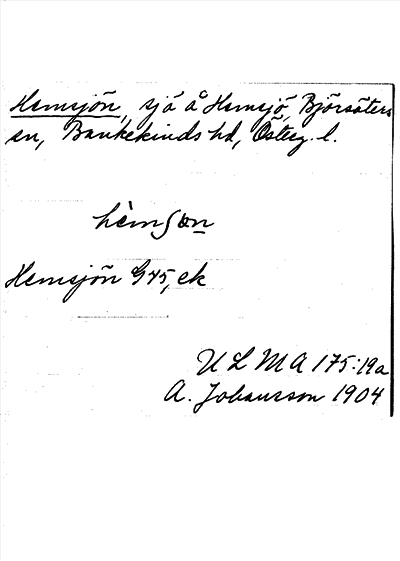 Hemsjön, sjö å Hemsjö, Björsäters
sn, Bankekinds hd, Österg. l.
hèmʃøn
Hemsjön G45, ek
ULMA 175:19a
A. Johansson 1904